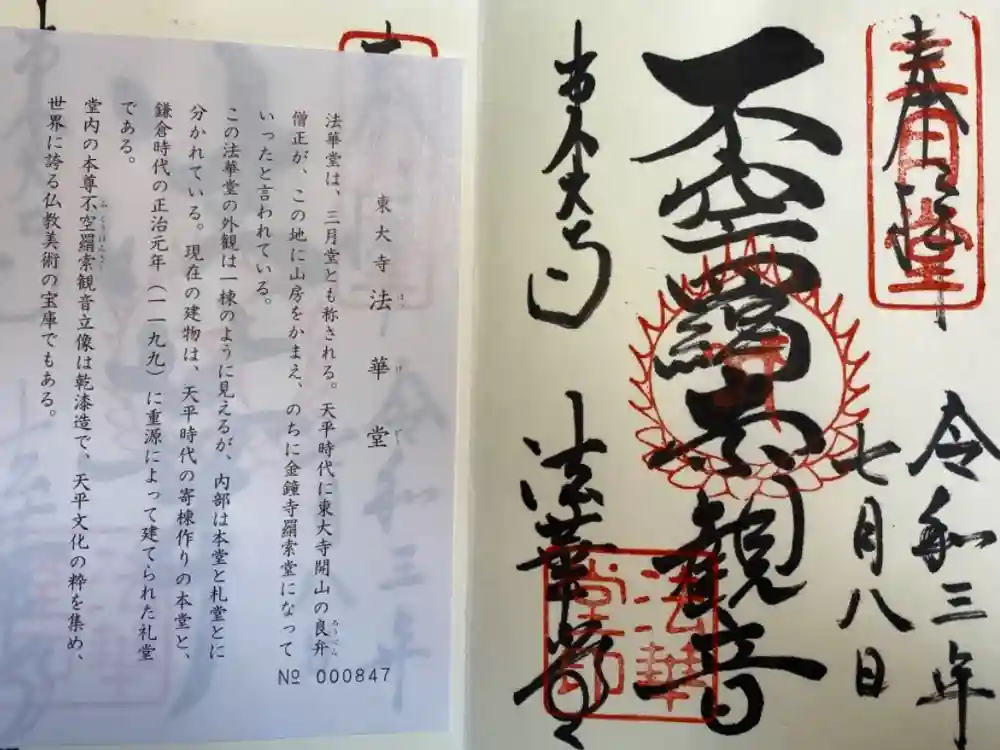 奉拝
三月堂
令和三年
七月八日
不空羂索観音
東大寺
法華堂
法華堂印
東大寺法華堂
ほっけどう
法華堂は、三月堂とも称される。天平時代に東大寺開山の良弁
ろうべん
僧正が、この地に山房をかまえ、のちに金鐘寺羂索堂になって
いったと言われている。
この法華堂の外観は一棟のように見えるが、内部は本堂と札堂とに
分かれている。現在の建物は、天平時代の寄棟作りの本堂と、
鎌倉時代の正治元年（一一九九）に重源によって建てられた礼堂
である。
堂内の本尊不空羂索観音立像は乾漆造で、天平文化の粋を集め、
ふくうけんさく
世界に誇る仏教美術の宝庫でもある。
№ 000847